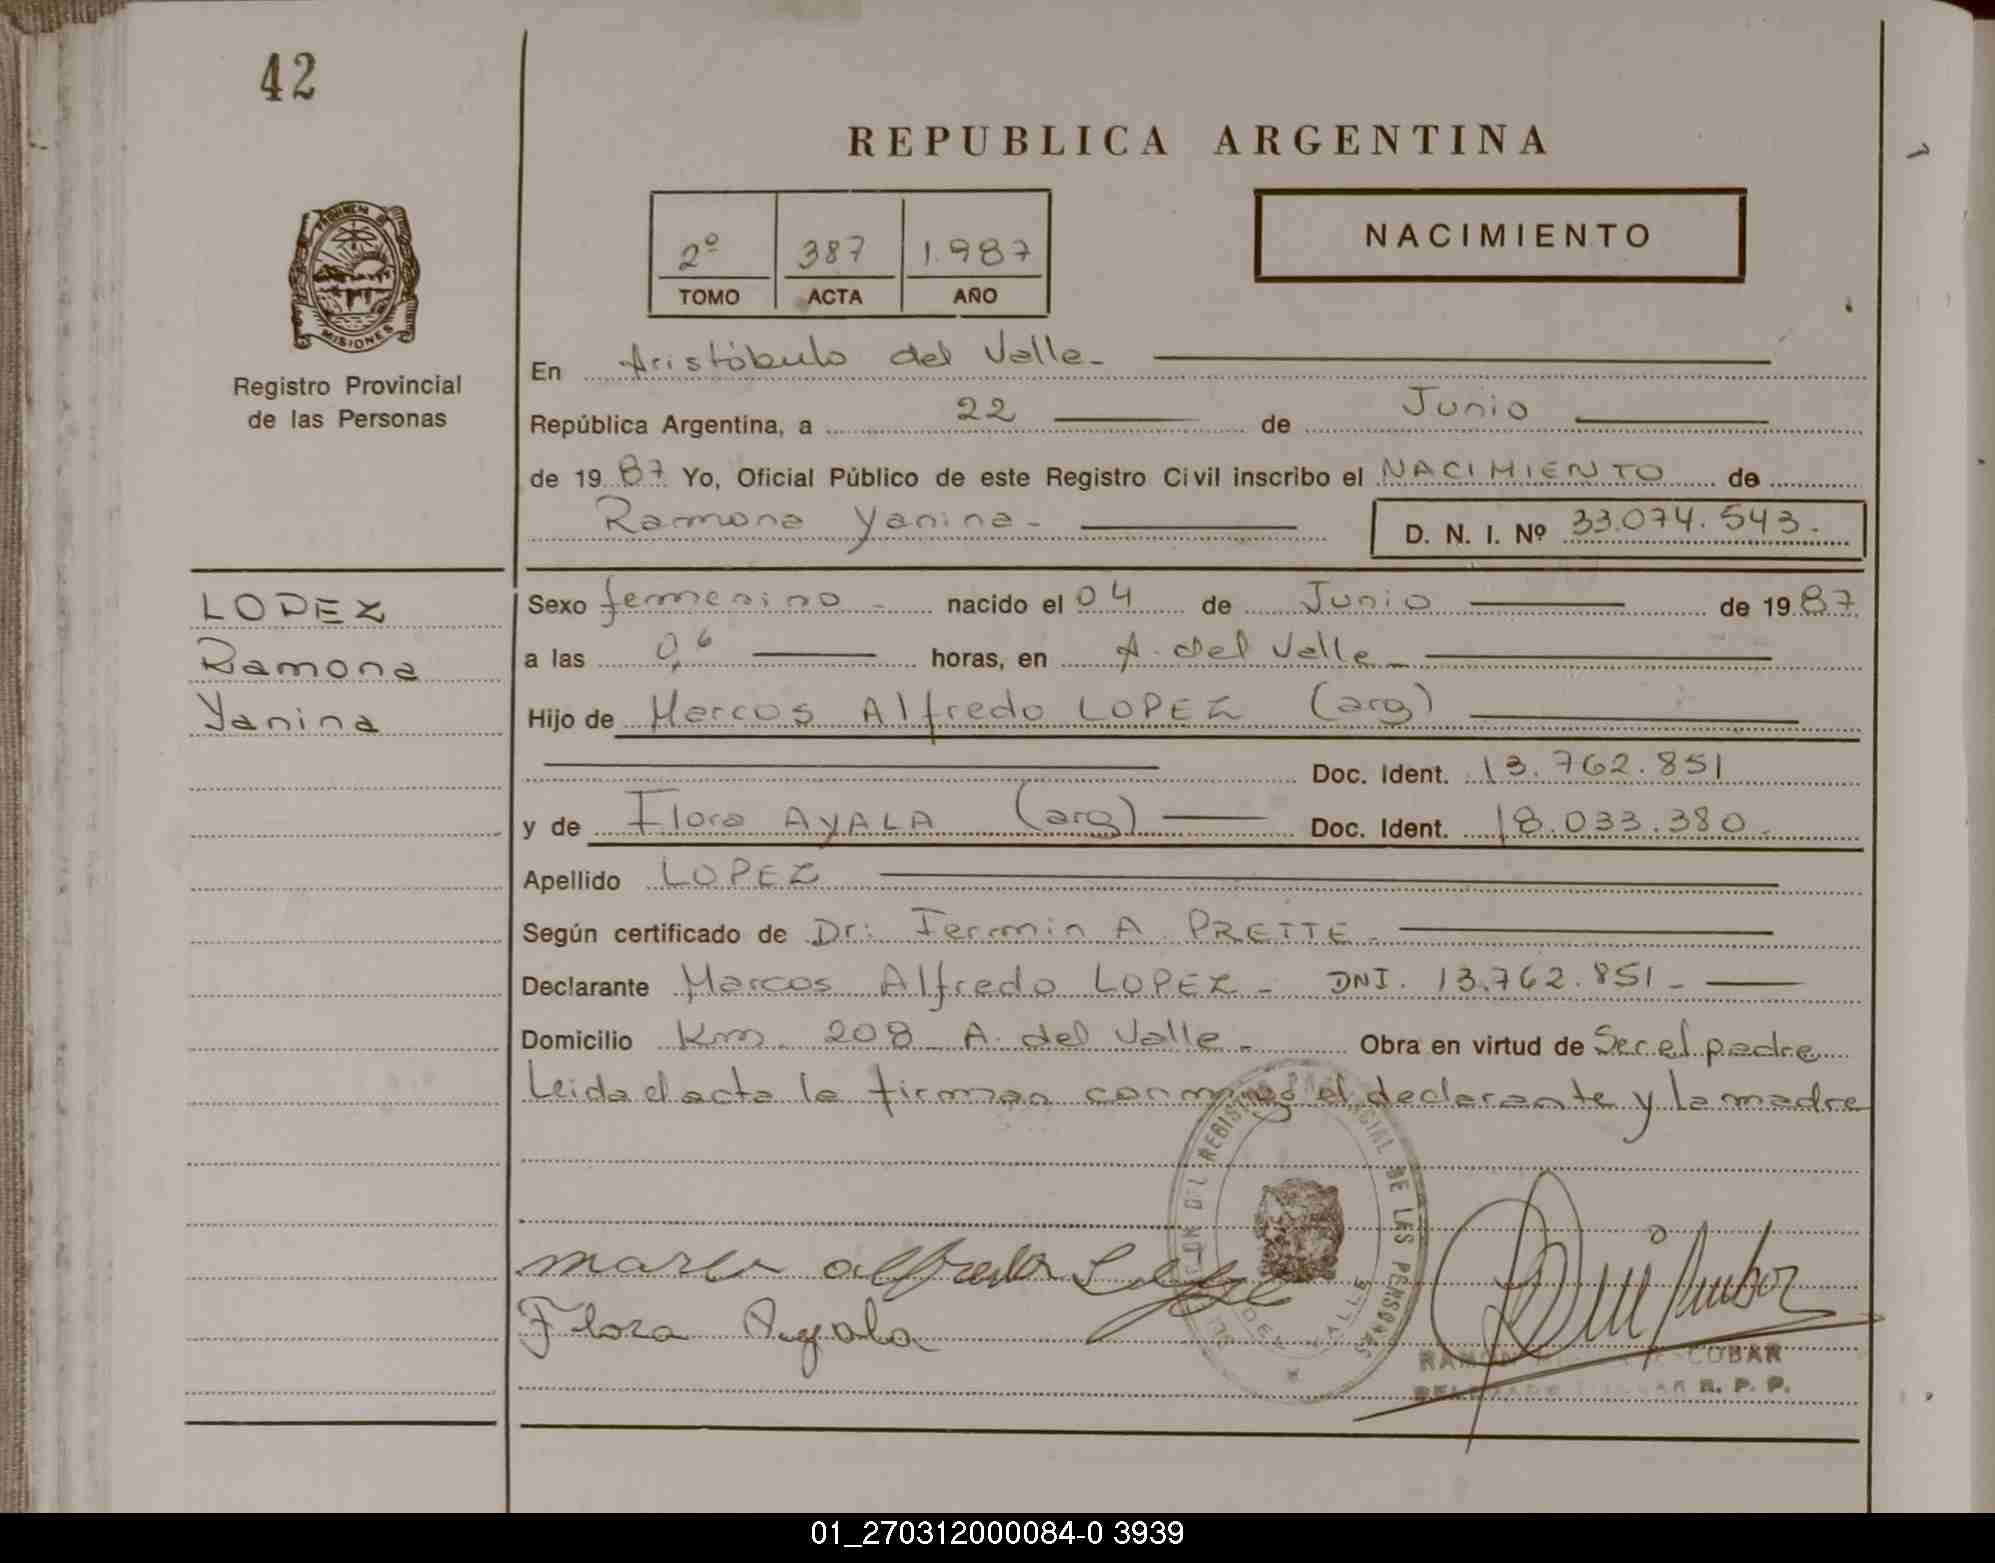 42
REPUBLICA ARGENTINA
2º 387 1.987
TOMO ACTA AÑO
NACIMIENTO
PROVINCIA DE
MISIONES
Registro Provincial
de las Personas
En Aristóbulo del Valle-
República Argentina, a 22 de Junio
de 19 87 Yo, Oficial Público de este Registro Civil inscribo el NACIMIENTO de
Ramona Yanina- D. N. I. Nº 33.074.543.
LOPEZ
Ramona
Yanina
Sexo femenino - nacido el 04 de Junio de 19 87
a las 0,6 horas, en A. del Valle-
Hijo de Marcos Alfredo LOPEZ (arg)
Doc. Ident. 13.762.851
y de Flora AYALA (arg) Doc. Ident. 18.033.380.
Apellido LOPEZ
Según certificado de Dr: Fermin A. PRETTE-
Declarante Marcos Alfredo LOPEZ - DNI. 13.762.851-
Domicilio Km. 208 A. del Valle- Obra en virtud de Ser el padre
Leida el acta la firman conmigo el declarante y la madre
DEL REGISTRO PROVINCIAL DE LAS PERSONAS
DEL VALLE
Flora Ayala
RAMON ESCOBAR
R. P. P.
01_270312000084-0 3939